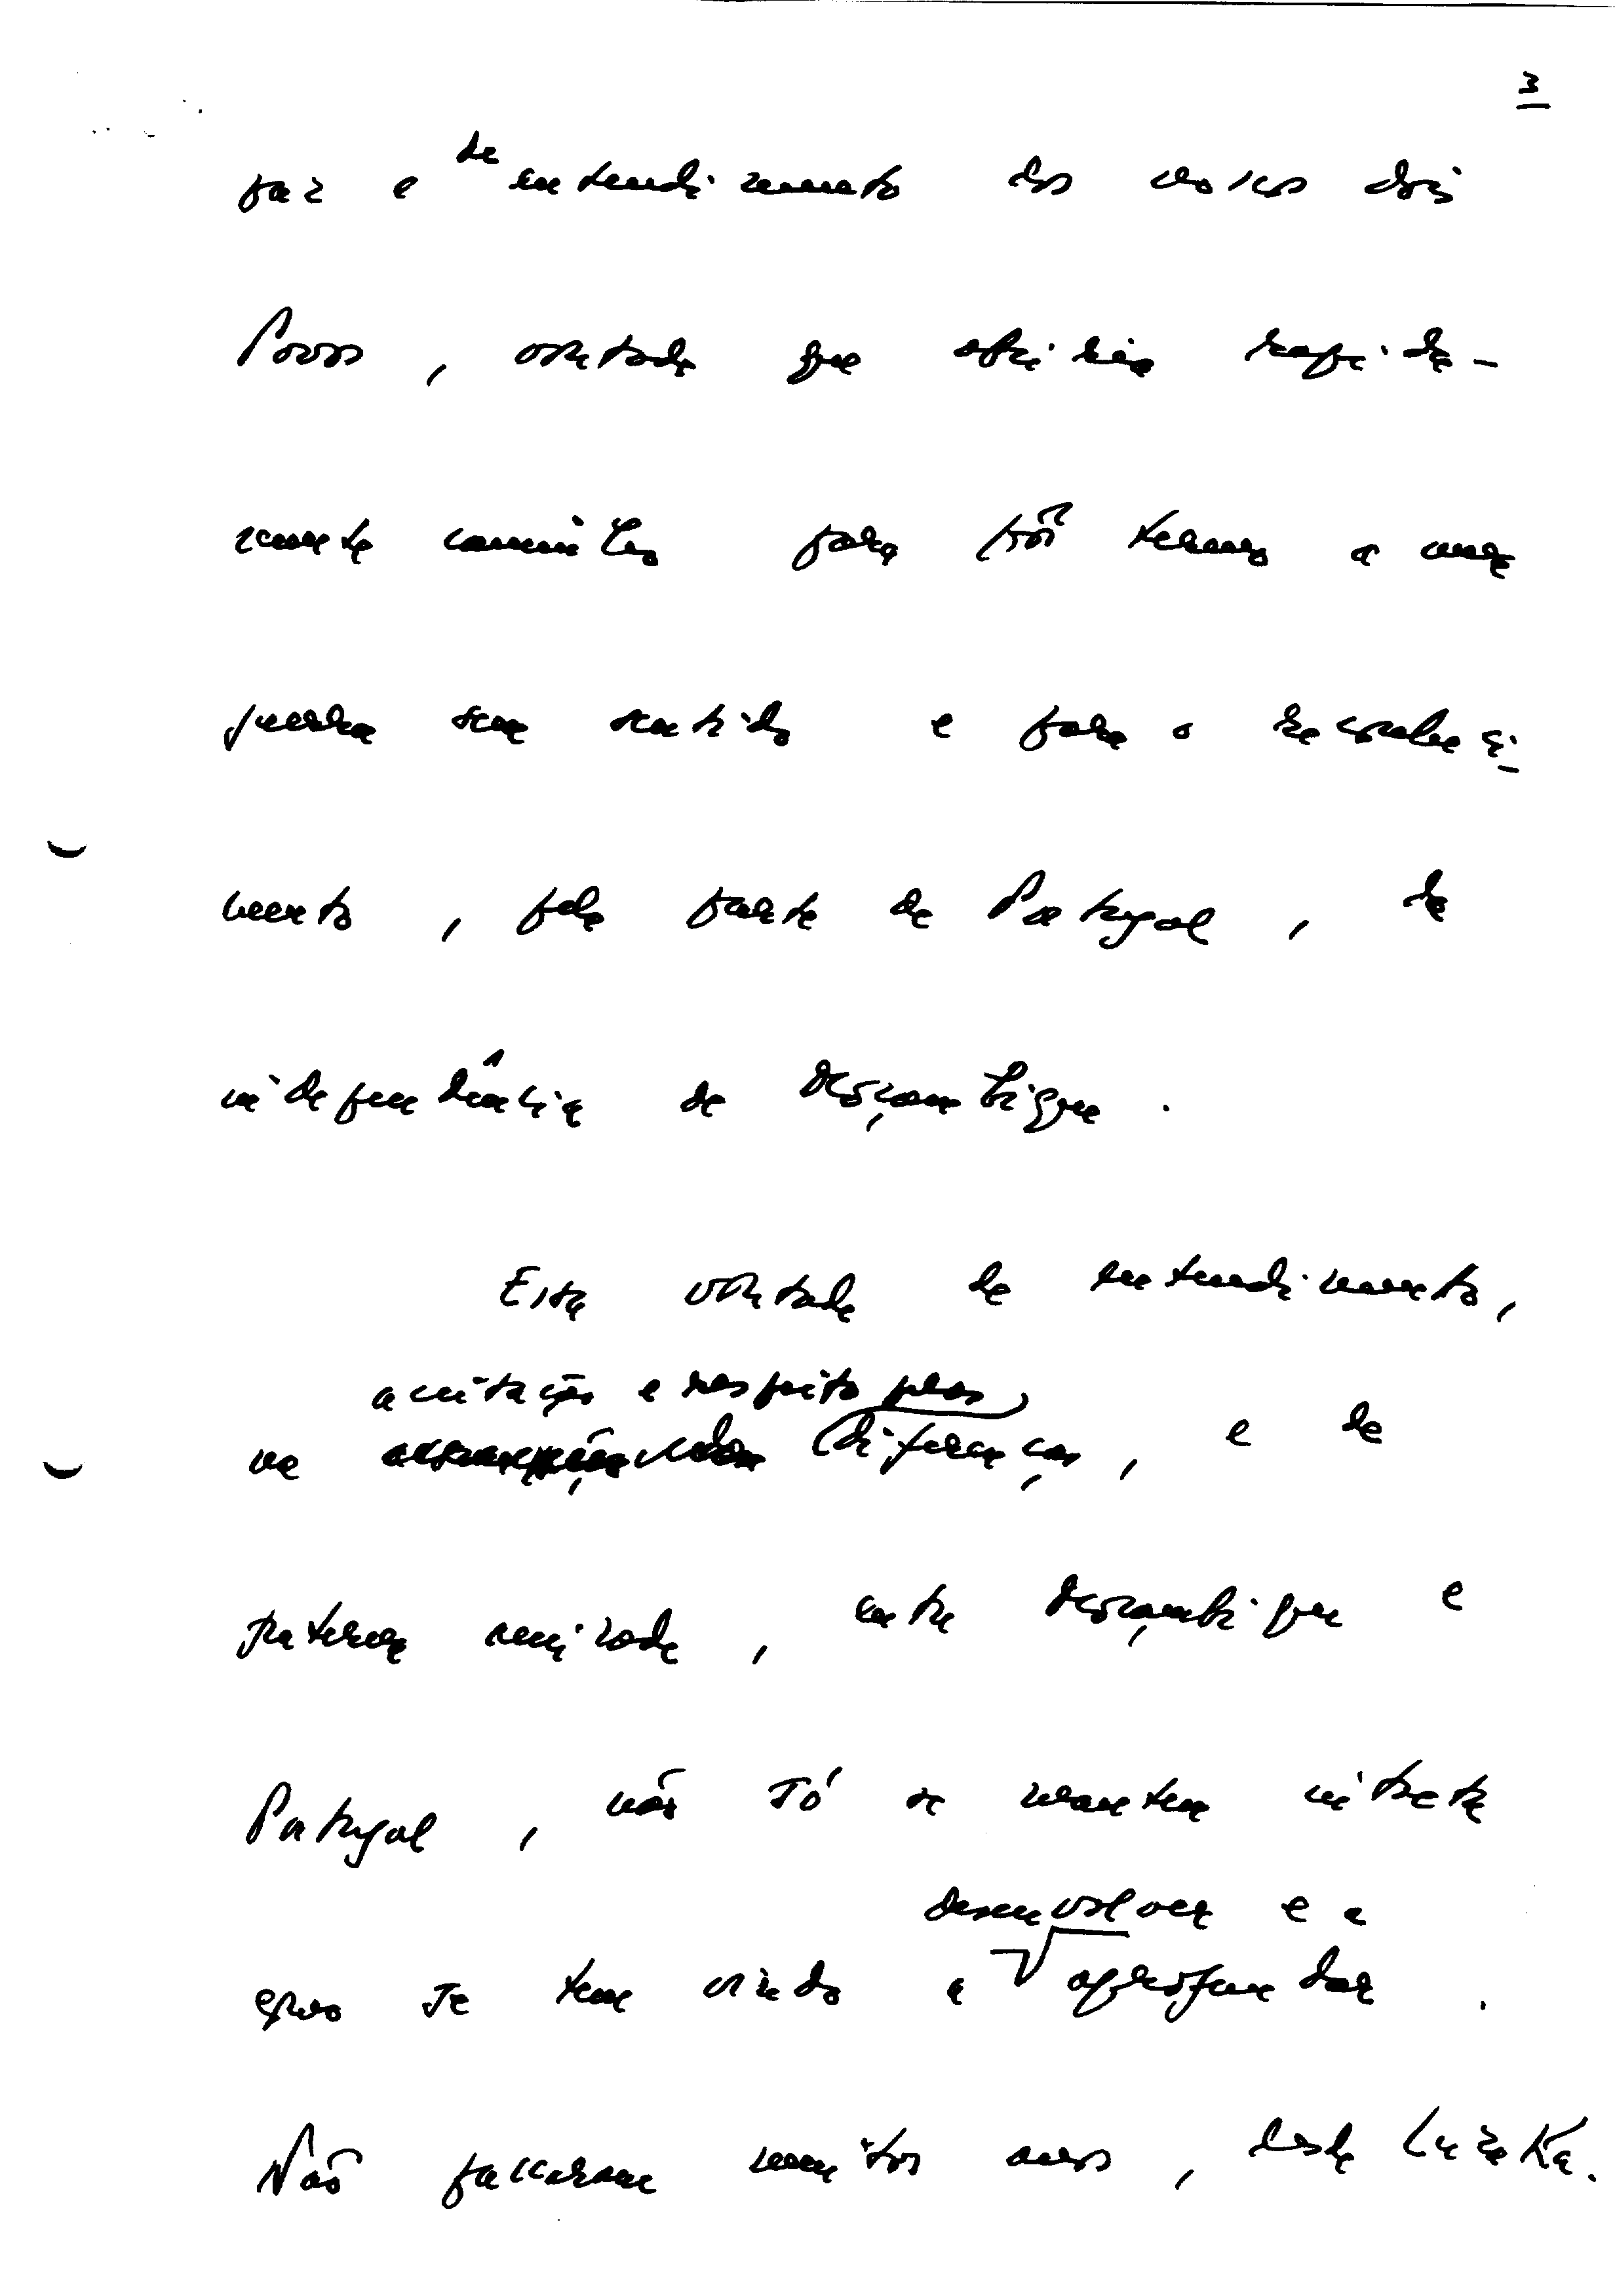 3
paz e de entendimento dos nossos dois
Povos, vontade que abriria rapida-
mente caminhos para pôr termo a uma
guerra sem sentido e para o reconheci
mento, pela parte de Portugal, da
independência de Moçambique.
Esta vontade de entendimento,
aceitação e respeito pelas
na diferenças, e de
fraterna amizade, entre Moçambique e
Portugal, não só se mantem intacta
desenvolver e a
como se tem vindo a aprofundar.
Não passaram muitos anos, desde Lusaka.